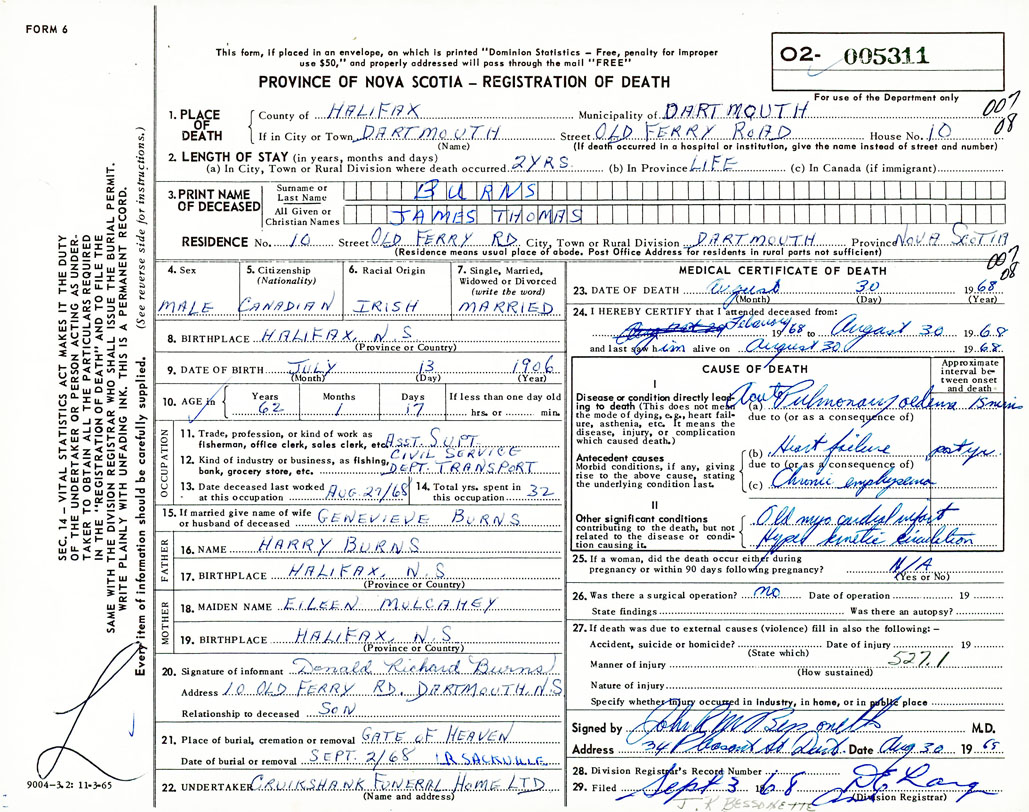 FORM 6
This form, if placed in an envelope, on which is printed "Dominion Statistics – Free, penalty for improper
use $50," and properly addressed will pass through the mail "FREE"
PROVINCE OF NOVA SCOTIA – REGISTRATION OF DEATH
02- 005311
For use of the Department only
007
08
1. PLACE OF DEATH
County of HALIFAX Municipality of DARTMOUTH
If in City or Town DARTMOUTH Street OLD FERRY ROAD House No. 10
(Name) (If death occurred in a hospital or institution, give the name instead of street and number)
2. LENGTH OF STAY (in years, months and days)
(a) In City, Town or Rural Division where death occurred 2 YRS. (b) In Province LIFE (c) In Canada (if immigrant)
3. PRINT NAME OF DECEASED
Surname or Last Name BURNS
All Given or Christian Names JAMES THOMAS
RESIDENCE No. 10 Street OLD FERRY RD. City, Town or Rural Division DARTMOUTH Province NOVA SCOTIA
(Residence means usual place of abode. Post Office Address for residents in rural parts not sufficient)
007
08
4. Sex
MALE
5. Citizenship (Nationality)
CANADIAN
6. Racial Origin
IRISH
7. Single, Married, Widowed or Divorced (write the word)
MARRIED
8. BIRTHPLACE HALIFAX, N.S
(Province or Country)
9. DATE OF BIRTH JULY 13 1906
(Month) (Day) (Year)
10. AGE in Years 62 Months 1 Days 17 If less than one day old
hrs. or min.
OCCUPATION
11. Trade, profession, or kind of work as fishermen, office clerk, sales clerk, etc. ASST. SUPT.
12. Kind of industry or business, as fishing, bank, grocery store, etc. CIVIL SERVICE DEPT. TRANSPORT
13. Date deceased last worked at this occupation AUG. 27/68
14. Total yrs. spent in this occupation 32
15. If married give name of wife or husband of deceased GENEVIEVE BURNS
FATHER
16. NAME HARRY BURNS
17. BIRTHPLACE HALIFAX, N.S
(Province or Country)
MOTHER
18. MAIDEN NAME EILEEN MULCAHEY
19. BIRTHPLACE HALIFAX, N.S
(Province or Country)
20. Signature of informant Donald Richard Burns
Address 10 OLD FERRY RD. DARTMOUTH, N.S
Relationship to deceased SON
21. Place of burial, cremation or removal GATE OF HEAVEN
Date of burial or removal SEPT. 2/68 LR SACKVILLE
22. UNDERTAKER CRUIKSHANK FUNERAL HOME LTD
(Name and address)
MEDICAL CERTIFICATE OF DEATH
23. DATE OF DEATH August 30 1968
(Month) (Day) (Year)
24. I HEREBY CERTIFY that I attended deceased from:
February 1968 to August 30 1968
and last saw him alive on August 30 1968
CAUSE OF DEATH
Approximate interval between onset and death
I
Disease or condition directly leading to death (This does not mean
the mode of dying, e.g., heart failure, asthenia, etc. It means the
disease, injury, or complication
which caused death.)
(a) Acute Pulmonary oedema 15 mins
due to (or as a consequence of)
Antecedent causes
Morbid conditions, if any, giving
rise to the above cause, stating
the underlying condition last.
(b) Heart failure
due to (or as a consequence of)
(c) Chronic emphysema
II
Other significant conditions
contributing to the death, but not
related to the disease or condition causing it.
Old myocardial infarct
Hyper kinetic circulation
25. If a woman, did the death occur either during
pregnancy or within 90 days following pregnancy? N/A
(Yes or No)
26. Was there a surgical operation? no Date of operation 19
State findings Was there an autopsy?
27. If death was due to external causes (violence) fill in also the following: –
Accident, suicide or homicide? Date of injury 19
(State which)
527.1
Manner of injury
(How sustained)
Nature of injury
Specify whether injury occurred in industry, in home, or in public place
Signed by M.D.
Address 34 Pleasant St. Dart. Date Aug. 30 1968
28. Division Registrar's Record Number
29. Filed Sept 3 1968
(Division Registrar)
J. K BESSONETTE
SEC. 14 – VITAL STATISTICS ACT MAKES IT THE DUTY
OF THE UNDERTAKER OR PERSON ACTING AS UNDER-
TAKER "TO OBTAIN ALL THE PARTICULARS REQUIRED
IN THE "REGISTRATION OF DEATH" AND TO FILE THE
SAME WITH THE DIVISION REGISTRAR WHO SHALL ISSUE THE BURIAL PERMIT.
WRITE PLAINLY WITH UNFADING INK. THIS IS A PERMANENT RECORD.
Every item of information should be carefully supplied. (See reverse side for instructions.)
9004–3.2: 11-3-65